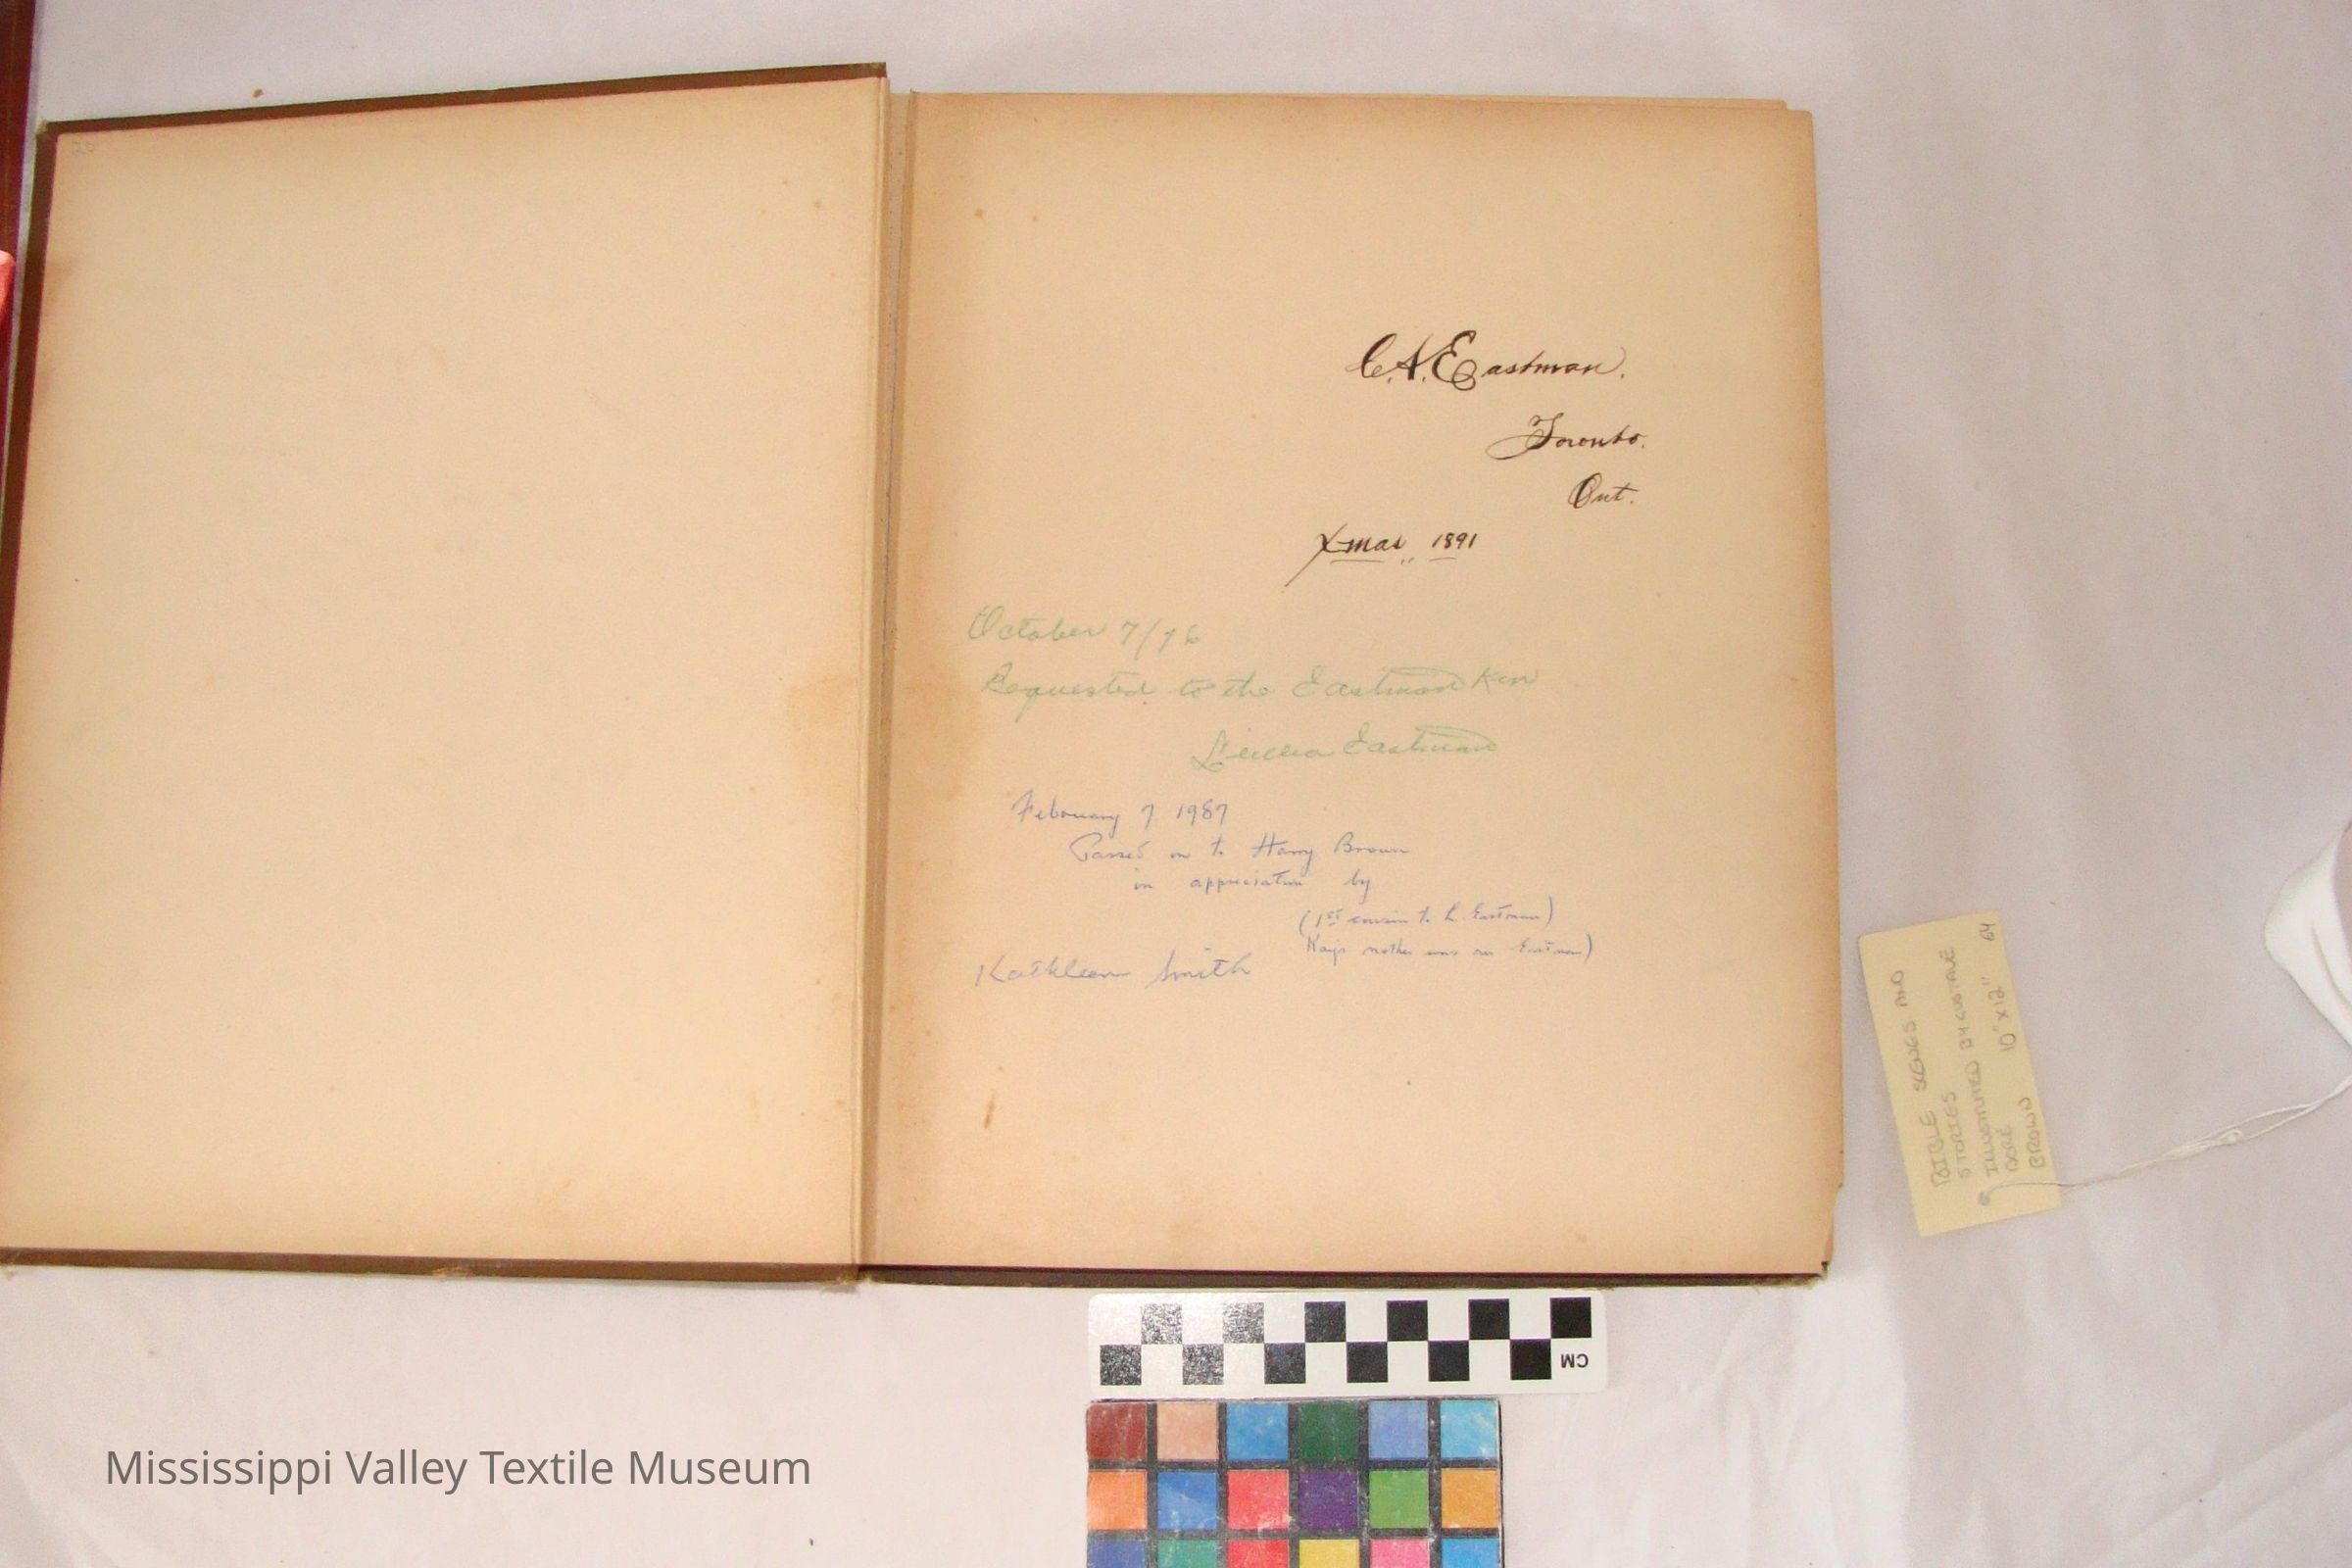 C.A. Eastman.
Toronto.
Ont.
Xmas 1891
October 7/76
Bequested to the Eastman Kin
Eastman
February 7 1987
Passed on to Harry Brown
in appreciation by
(1st cousin to L. Eastman)
Kay's mother was an Eastman)
Kathleen Smith
BIBLE SCENES AND
STORIES
ILLUSTRATED BY GUSTAVE
DORÉ 10" x 12" 64
BROWN
CM
Mississippi Valley Textile Museum